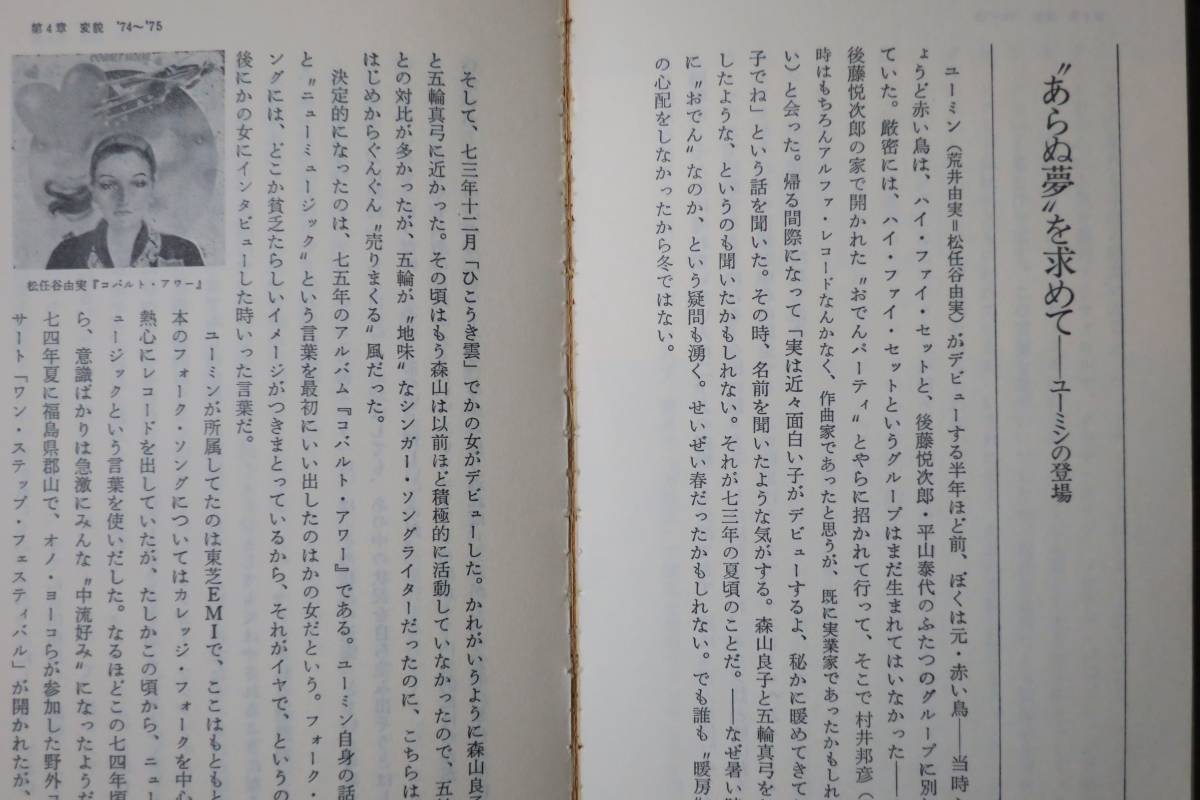 〝あらぬ夢〟を求めて——ユーミンの登場
ユーミン（荒井由実＝松任谷由実）がデビューする半年ほど前、ぼくは元・赤い鳥——当時
ょうど赤い鳥は、ハイ・ファイ・セットと、後藤悦次郎・平山泰代のふたつのグループに別
ていた。厳密には、ハイ・ファイ・セットというグループはまだ生まれてはいなかった——
後藤悦次郎の家で開かれた〝おでんパーティ〟とやらに招かれて行って、そこで村井邦彦（
時はもちろんアルファ・レコードなんかなく、作曲家であったと思うが、既に実業家であったかもしれ
い）と会った。帰る間際になって「実は近々面白い子がデビューするよ、秘かに暖めてきて
子でね」という話を聞いた。その時、名前を聞いたような気がする。森山良子と五輪真弓を
したような、というのも聞いたかもしれない。それが七三年の夏頃のことだ。——なぜ暑い
に〝おでん〟なのか、という疑問も湧く。せいぜい春だったかもしれない。でも誰も〝暖房〟
の心配をしなかったから冬ではない。
第4章 変貌 '74〜'75
そして、七三年十二月「ひこうき雲」でかの女がデビューした。かれがいうように森山良子
と五輪真弓に近かった。その頃はもう森山は以前ほど積極的に活動していなかったので、五
との対比が多かったが、五輪が〝地味〟なシンガー・ソングライターだったのに、こちらは
はじめからぐんぐん〝売りまくる〟風だった。
決定的になったのは、七五年のアルバム『コバルト・アワー』である。ユーミン自身の話
と〝ニューミュージック〟という言葉を最初にいい出したのはかの女だという。フォーク・
ングには、どこか貧乏たらしいイメージがつきまとっているから、それがイヤで、というの
後にかの女にインタビューした時いった言葉だ。
COBALT HOUR
松任谷由実『コバルト・アワー』
ユーミンが所属してたのは東芝EMIで、ここはもともと
本のフォーク・ソングについてはカレッジ・フォークを中心
熱心にレコードを出していたが、たしかこの頃から、ニュー
ュージックという言葉を使いだした。なるほどこの七四年頃
ら、意識ばかりは急激にみんな〝中流好み〟になったようだ
七四年夏に福島県郡山で、オノ・ヨーコらが参加した野外
サート「ワン・ステップ・フェスティバル」が開かれたが、